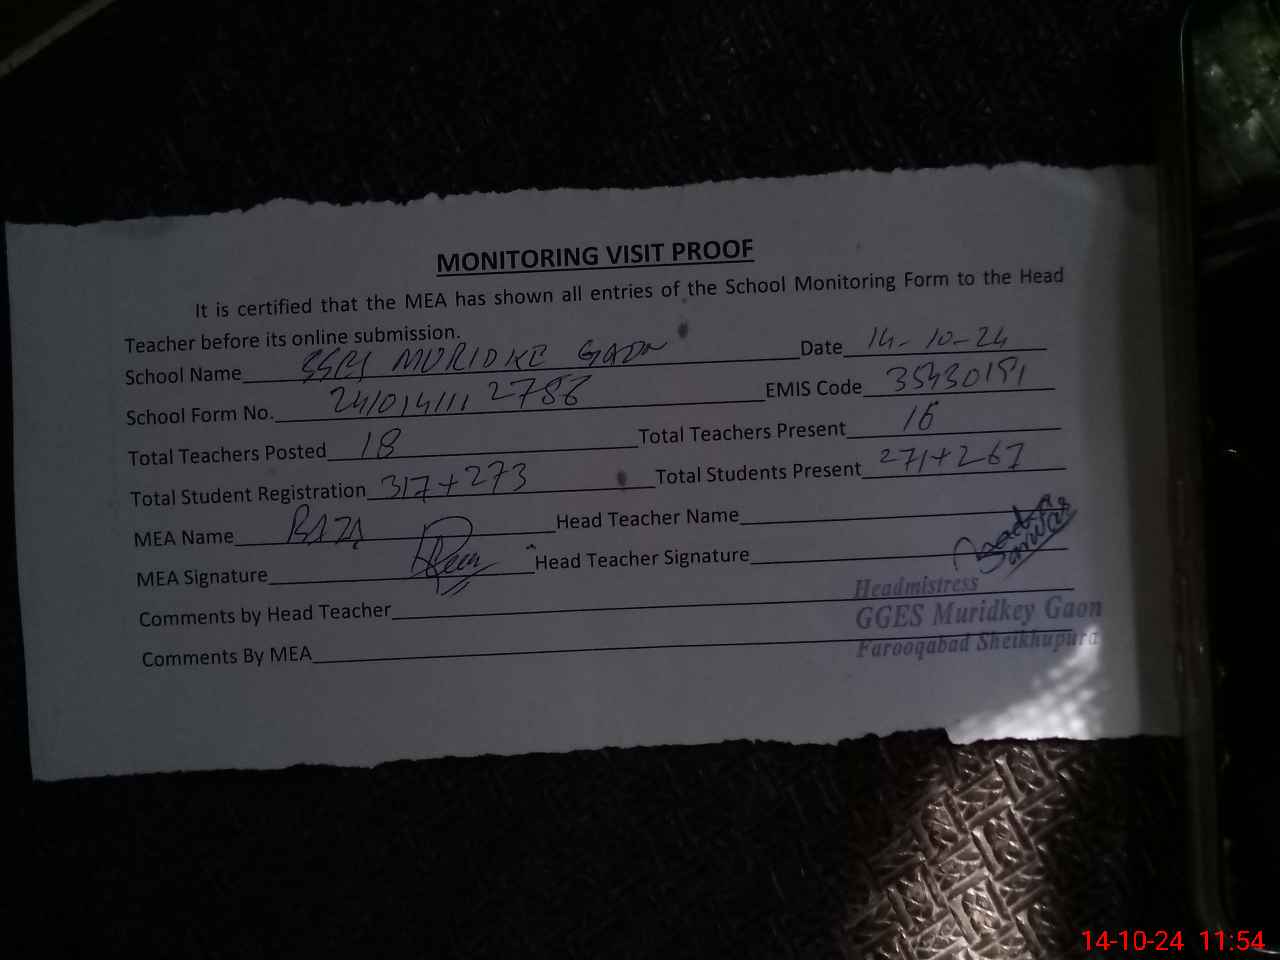 MONITORING VISIT PROOF
It is certified that the MEA has shown all entries of the School Monitoring Form to the Head
Teacher before its online submission.
School Name MURIDKE GAON Date 14-10-24
School Form No. 2410141112786 EMIS Code 35430191
Total Teachers Posted 18 Total Teachers Present 16
Total Student Registration 317+273 Total Students Present 271+267
MEA Name RAZA Head Teacher Name
MEA Signature Head Teacher Signature
Headmistress
Comments by Head Teacher
GGES Muridkey Gaon
Comments By MEA
Farooqabad Sheikhupura
14-10-24 11:54